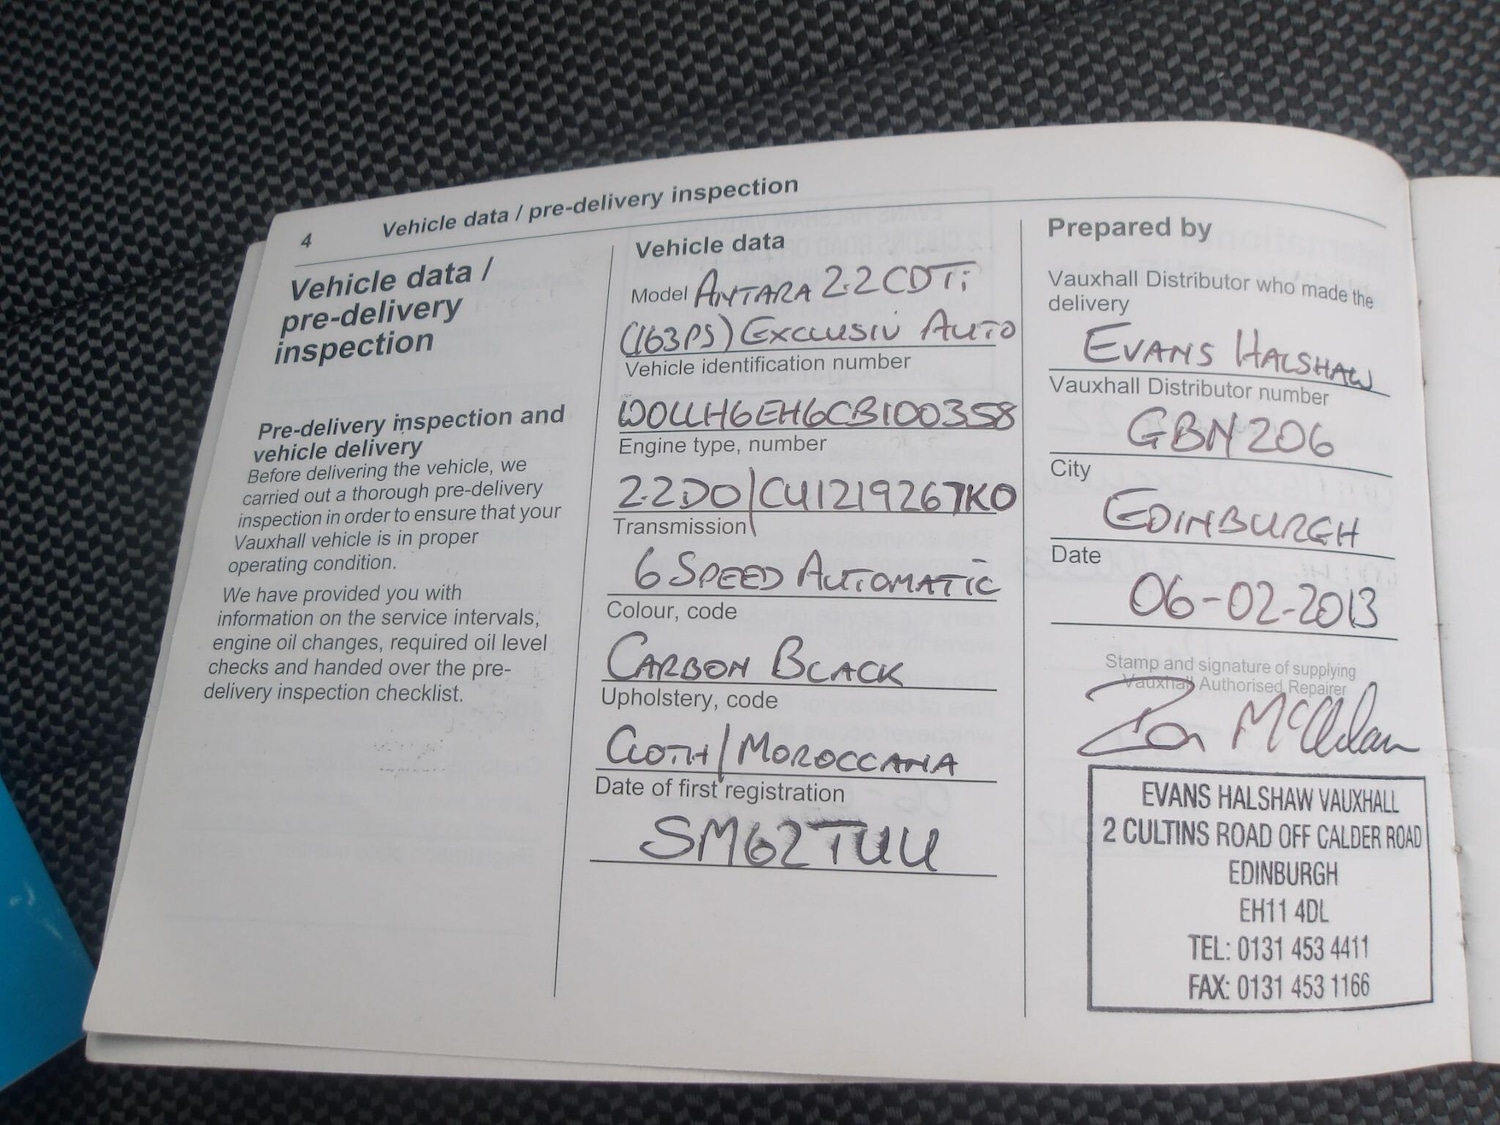 4
Vehicle data / pre-delivery inspection
Vehicle data /
pre-delivery
inspection
Pre-delivery inspection and
vehicle delivery
Before delivering the vehicle, we
carried out a thorough pre-delivery
inspection in order to ensure that your
Vauxhall vehicle is in proper
operating condition.
We have provided you with
information on the service intervals,
engine oil changes, required oil level
checks and handed over the pre-
delivery inspection checklist.
Vehicle data
Model ANTARA 2.2 CDTi
(163PS) EXCLUSIV AUTO
Vehicle identification number
W0LLH6EH6CB100358
Engine type, number
2.2DO/CU1219267KO
Transmission
6 SPEED AUTOMATIC
Colour, code
CARBON BLACK
Upholstery, code
CLOTH/MOROCCANA
Date of first registration
SM62TUU
Prepared by
Vauxhall Distributor who made the
delivery
EVANS HALSHAW
Vauxhall Distributor number
GBN 206
City
EDINBURGH
Date
06-02-2013
Stamp and signature of supplying
Vauxhall Authorised Repairer
EVANS HALSHAW VAUXHALL
2 CULTINS ROAD OFF CALDER ROAD
EDINBURGH
EH11 4DL
TEL: 0131 453 4411
FAX: 0131 453 1166